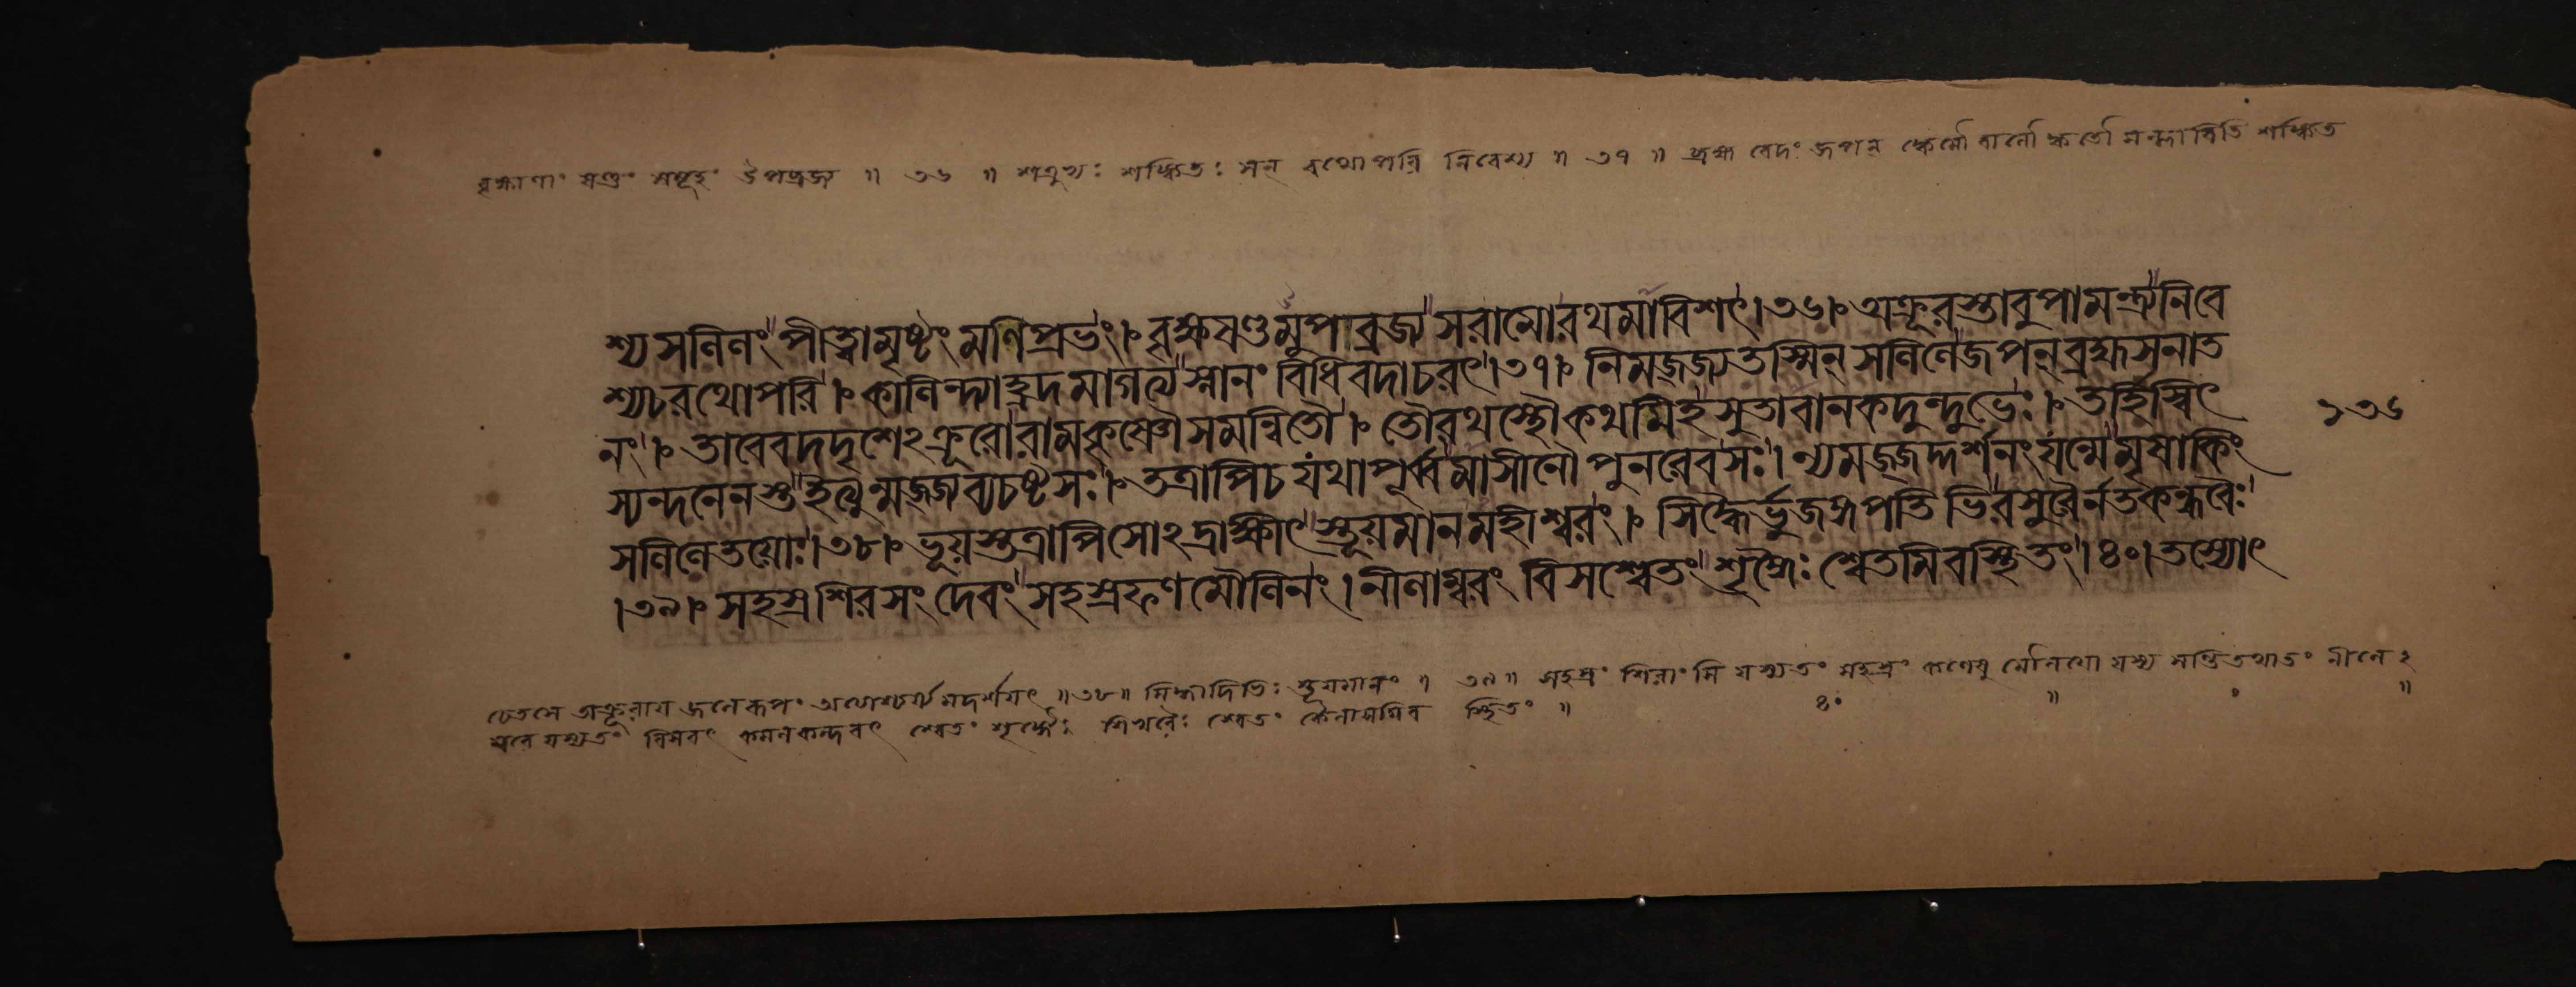 বৃক্ষাণাং ষণ্ডং সমূহং উপব্রজ্য ॥ ৩৬ ॥ শত্রুভ্যঃ শঙ্কিতঃ সন্ রথোপরি নিবেশ্য ॥ ৩৭ ॥ ব্রহ্ম বেদং জপন্ শঙ্কিত
শ্য সলিলং পীত্বা মৃষ্টং মণিপ্রভং । বৃক্ষষণ্ডমুপাব্রজ্য সরামো রথমাবিশৎ । ৩৬ । অক্রূরস্তাবুপামন্ত্র্য নিবে
শ্য চ রথোপরি । কালিন্দ্যা হ্রদমাগত্য স্নানং বিধিবদাচরৎ । ৩৭ । নিমজ্জ্য তস্মিন্ সলিলে জপন্ ব্রহ্ম সনাত
নং । তাবেব দদৃশেঽক্রূরো রামকৃষ্ণৌ সমন্বিতৌ । তৌ রথস্থৌ কথমিহ সুতাবানকদুন্দুভেঃ । তর্হি স্বিৎ
১৩৬
স্যন্দনে ন স্ত ইত্যুন্মজ্জ্য ব্যচষ্ট সঃ । তত্রাপি চ যথাপূর্ব্বমাসীনৌ পুনরেব সঃ । ন্যমজ্জদ্দর্শনং যন্মে মৃষা কিং
সলিলে তয়োঃ । ৩৮ । ভূয়স্তত্রাপি সোঽদ্রাক্ষীৎ স্তূয়মানমহীশ্বরং । সিদ্ধৈর্ভুজঙ্গপতিভিরসুরৈর্নতকন্ধরৈঃ
। ৩৯ । সহস্রশিরসং দেবং সহস্রফণমৌলিনং । নীলাম্বরং বিসশ্বেতং শৃঙ্গৈঃ শ্বেতমিব স্থিতং । ৪০ । তস্যোৎ
চেতসে অক্রূরায় জলে রূপং অদর্শয়ৎ ॥ ৩৮ ॥ সিদ্ধাদিভিঃ স্তূয়মানং ॥ ৩৯ ॥ সহস্রং শিরাংসি যস্য তং সহস্রং ফণেষু মৌলয়ো যস্য তং নীলেঽ
ম্বরে যস্য তং বিসবৎ কমলকন্দবৎ শ্বেতং শৃঙ্গৈঃ শিখরৈঃ শ্বেতং কৈলাসমিব স্থিতং ॥ ৪০ ॥